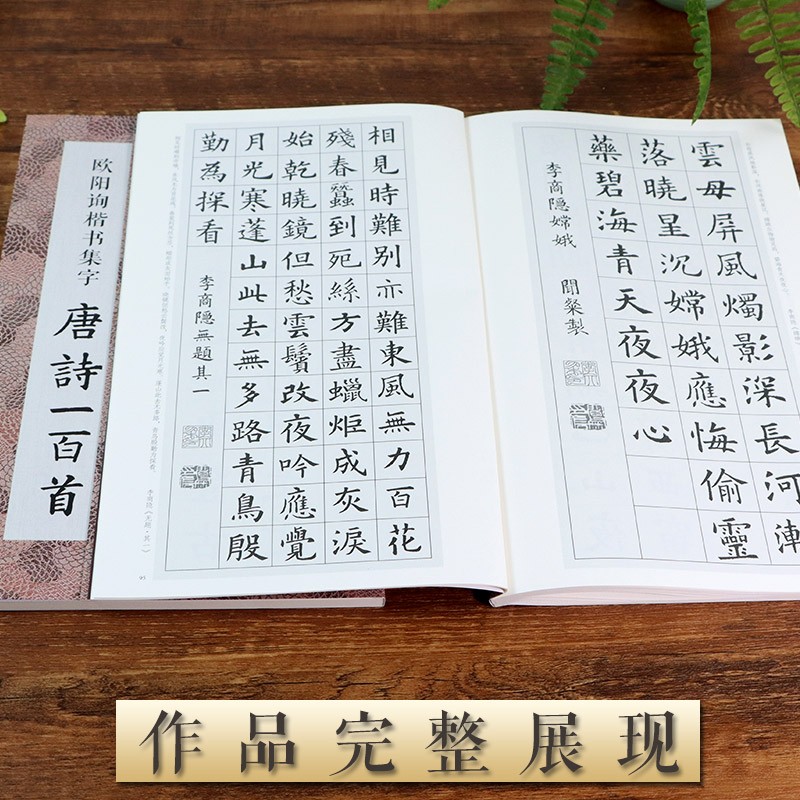 欧阳询楷书集字
唐詩一百首
雲母屏風燭影深長河漸
落曉星沉嫦娥應悔偷靈
藥碧海青天夜夜心
李商隐嫦娥
相見時難別亦難東風無力百花
殘春蠶到死絲方盡蠟炬成灰淚
始乾曉鏡但愁雲鬢改夜吟應覺
月光寒蓬山此去無多路青鳥殷
勤為探看
李商隐無題其一
李商隐《无题·其一》
作品完整展现